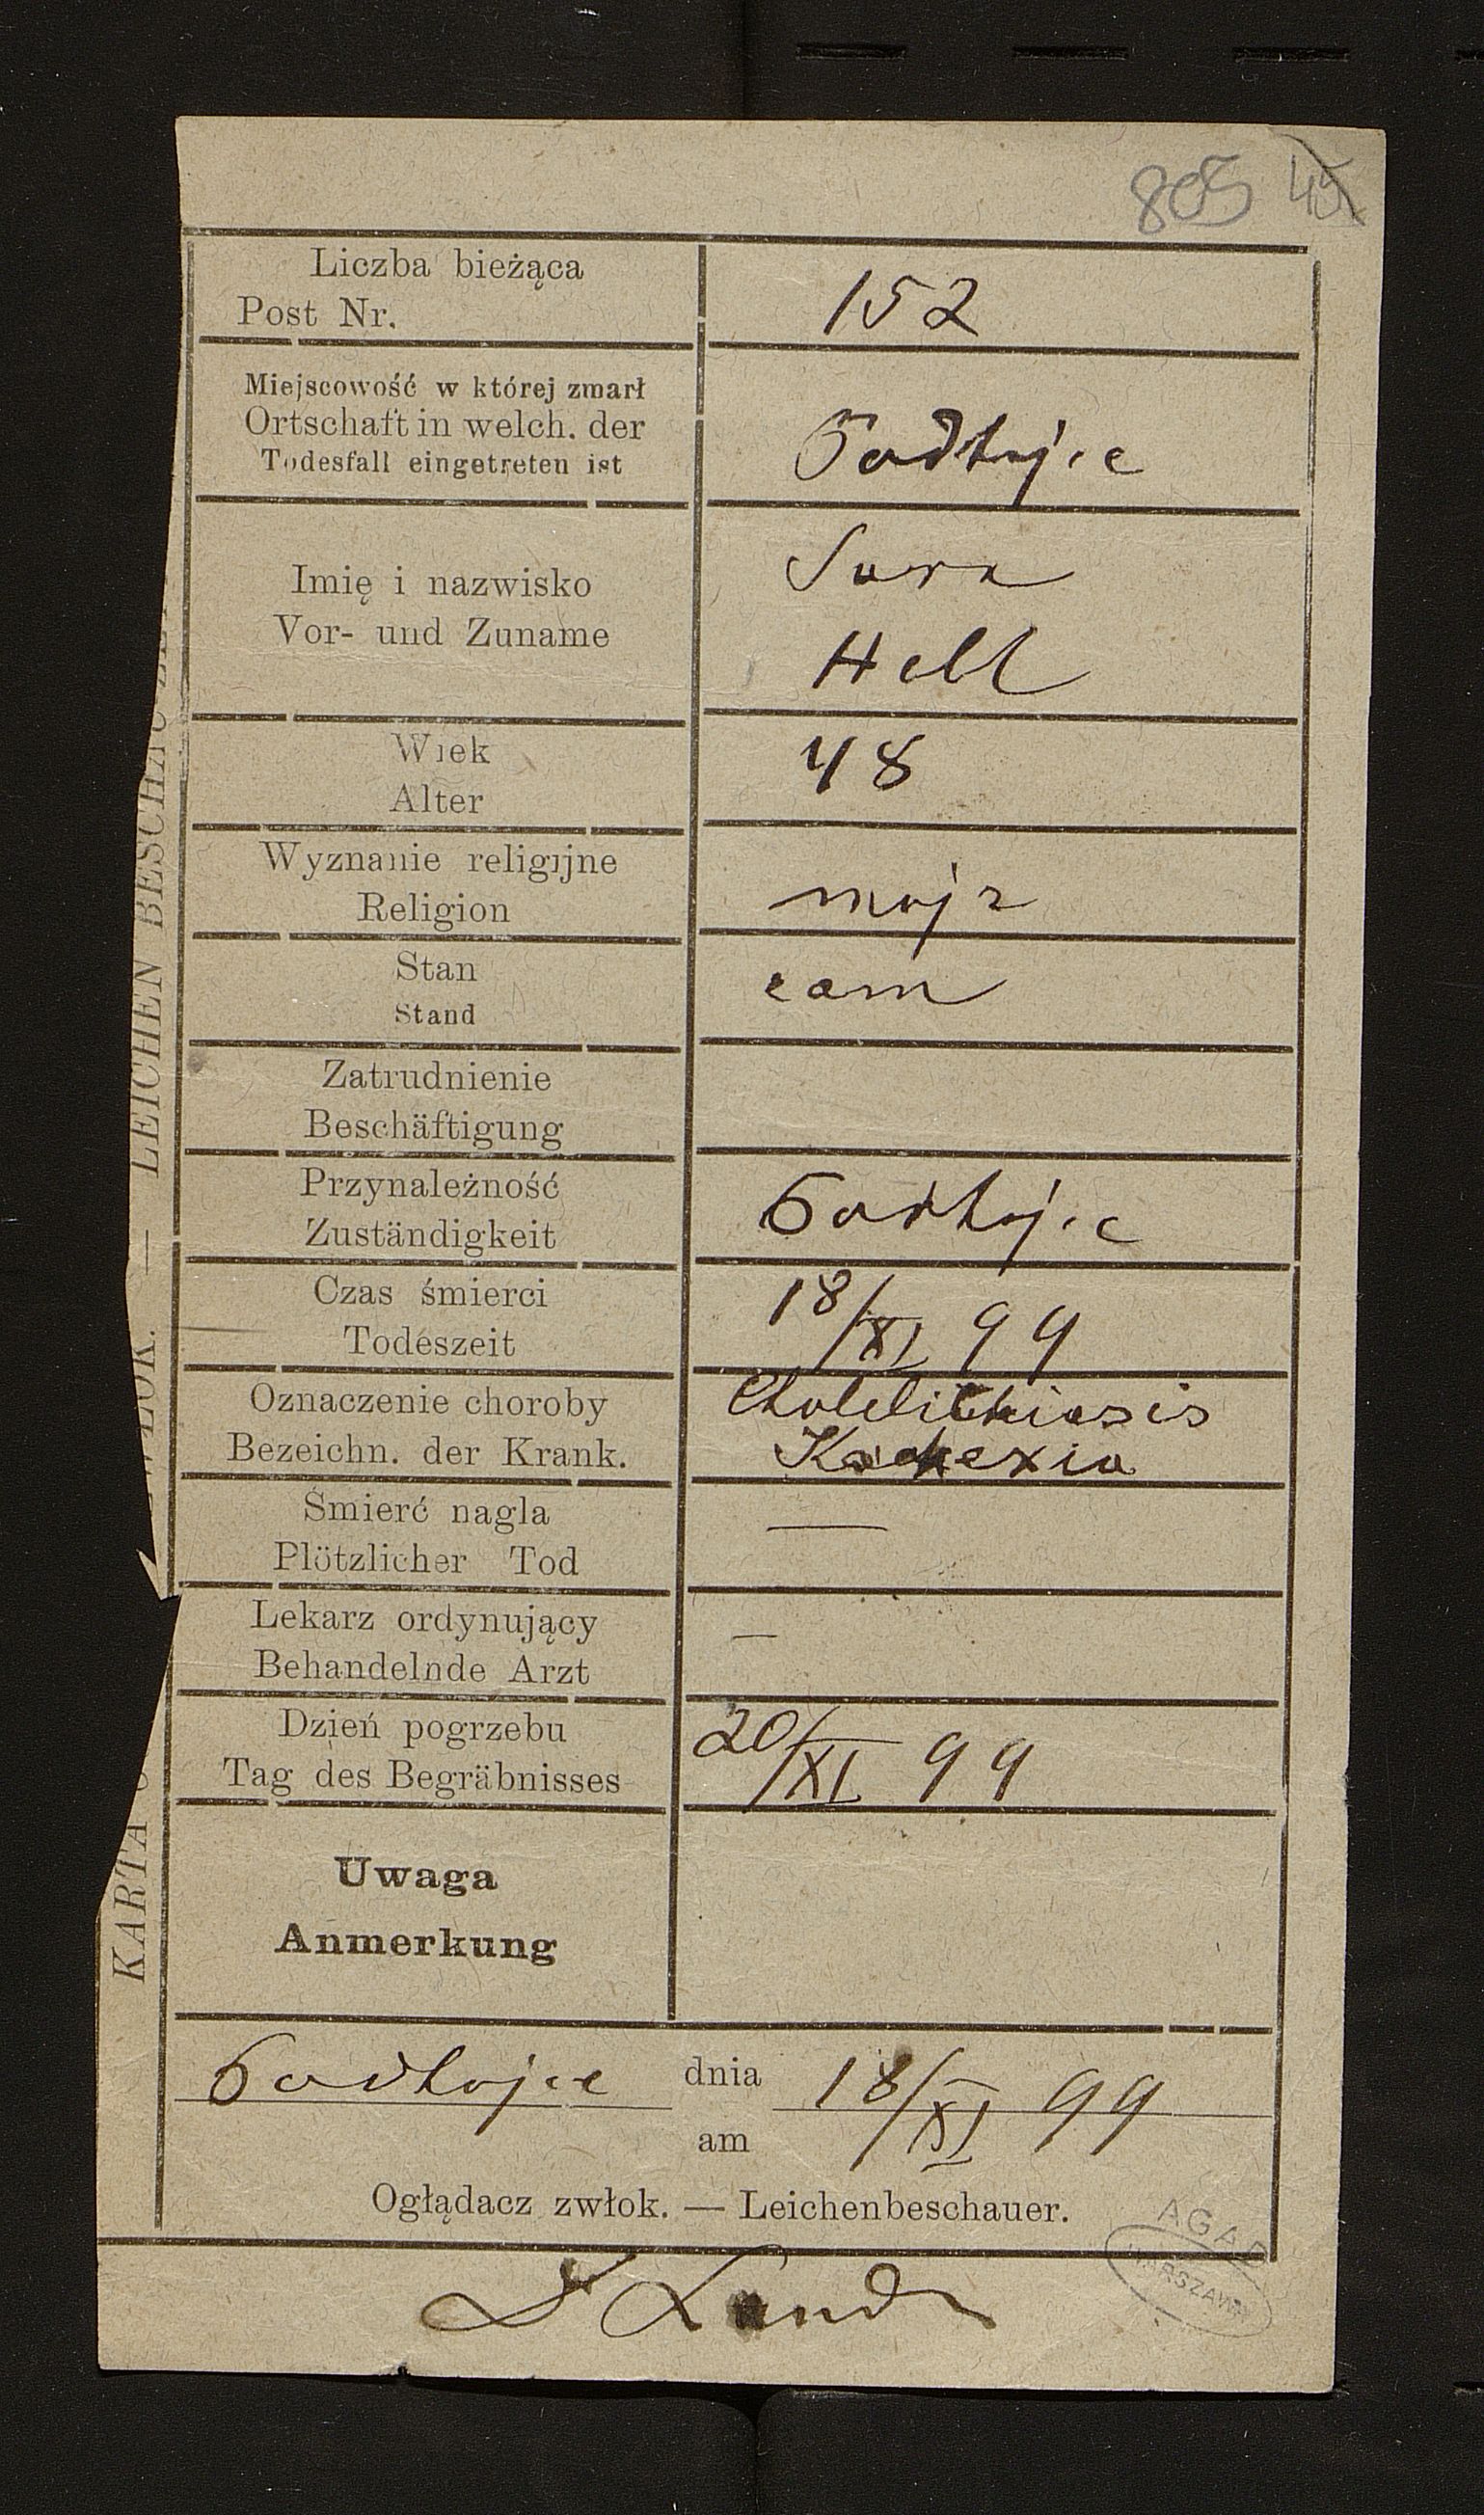 805 45
Liczba bieżąca
Post Nr.
152
Miejscowość w której zmarł
Ortschaft in welch. der
Todesfall eingetreten ist
Podhajce
Imię i nazwisko
Vor- und Zuname
Sara
Hell
Wiek
Alter
48
Wyznanie religijne
Religion
mojż
Stan
Stand
zam
Zatrudnienie
Beschäftigung
Przynależność
Zuständigkeit
Podhajce
Czas śmierci
Todeszeit
18/XI 99
Oznaczenie choroby
Bezeichn. der Krank.
Cholelithiasis
Kachexia
Śmierć nagla
Plötzlicher Tod
—
Lekarz ordynujący
Behandelnde Arzt
—
Dzień pogrzebu
Tag des Begräbnisses
20/XI 99
Uwaga
Anmerkung
Podhajce dnia 18/XI 99
am
Oglądacz zwłok. — Leichenbeschauer.
KARTA
— LEICHEN
AGAD
WARSZAWA